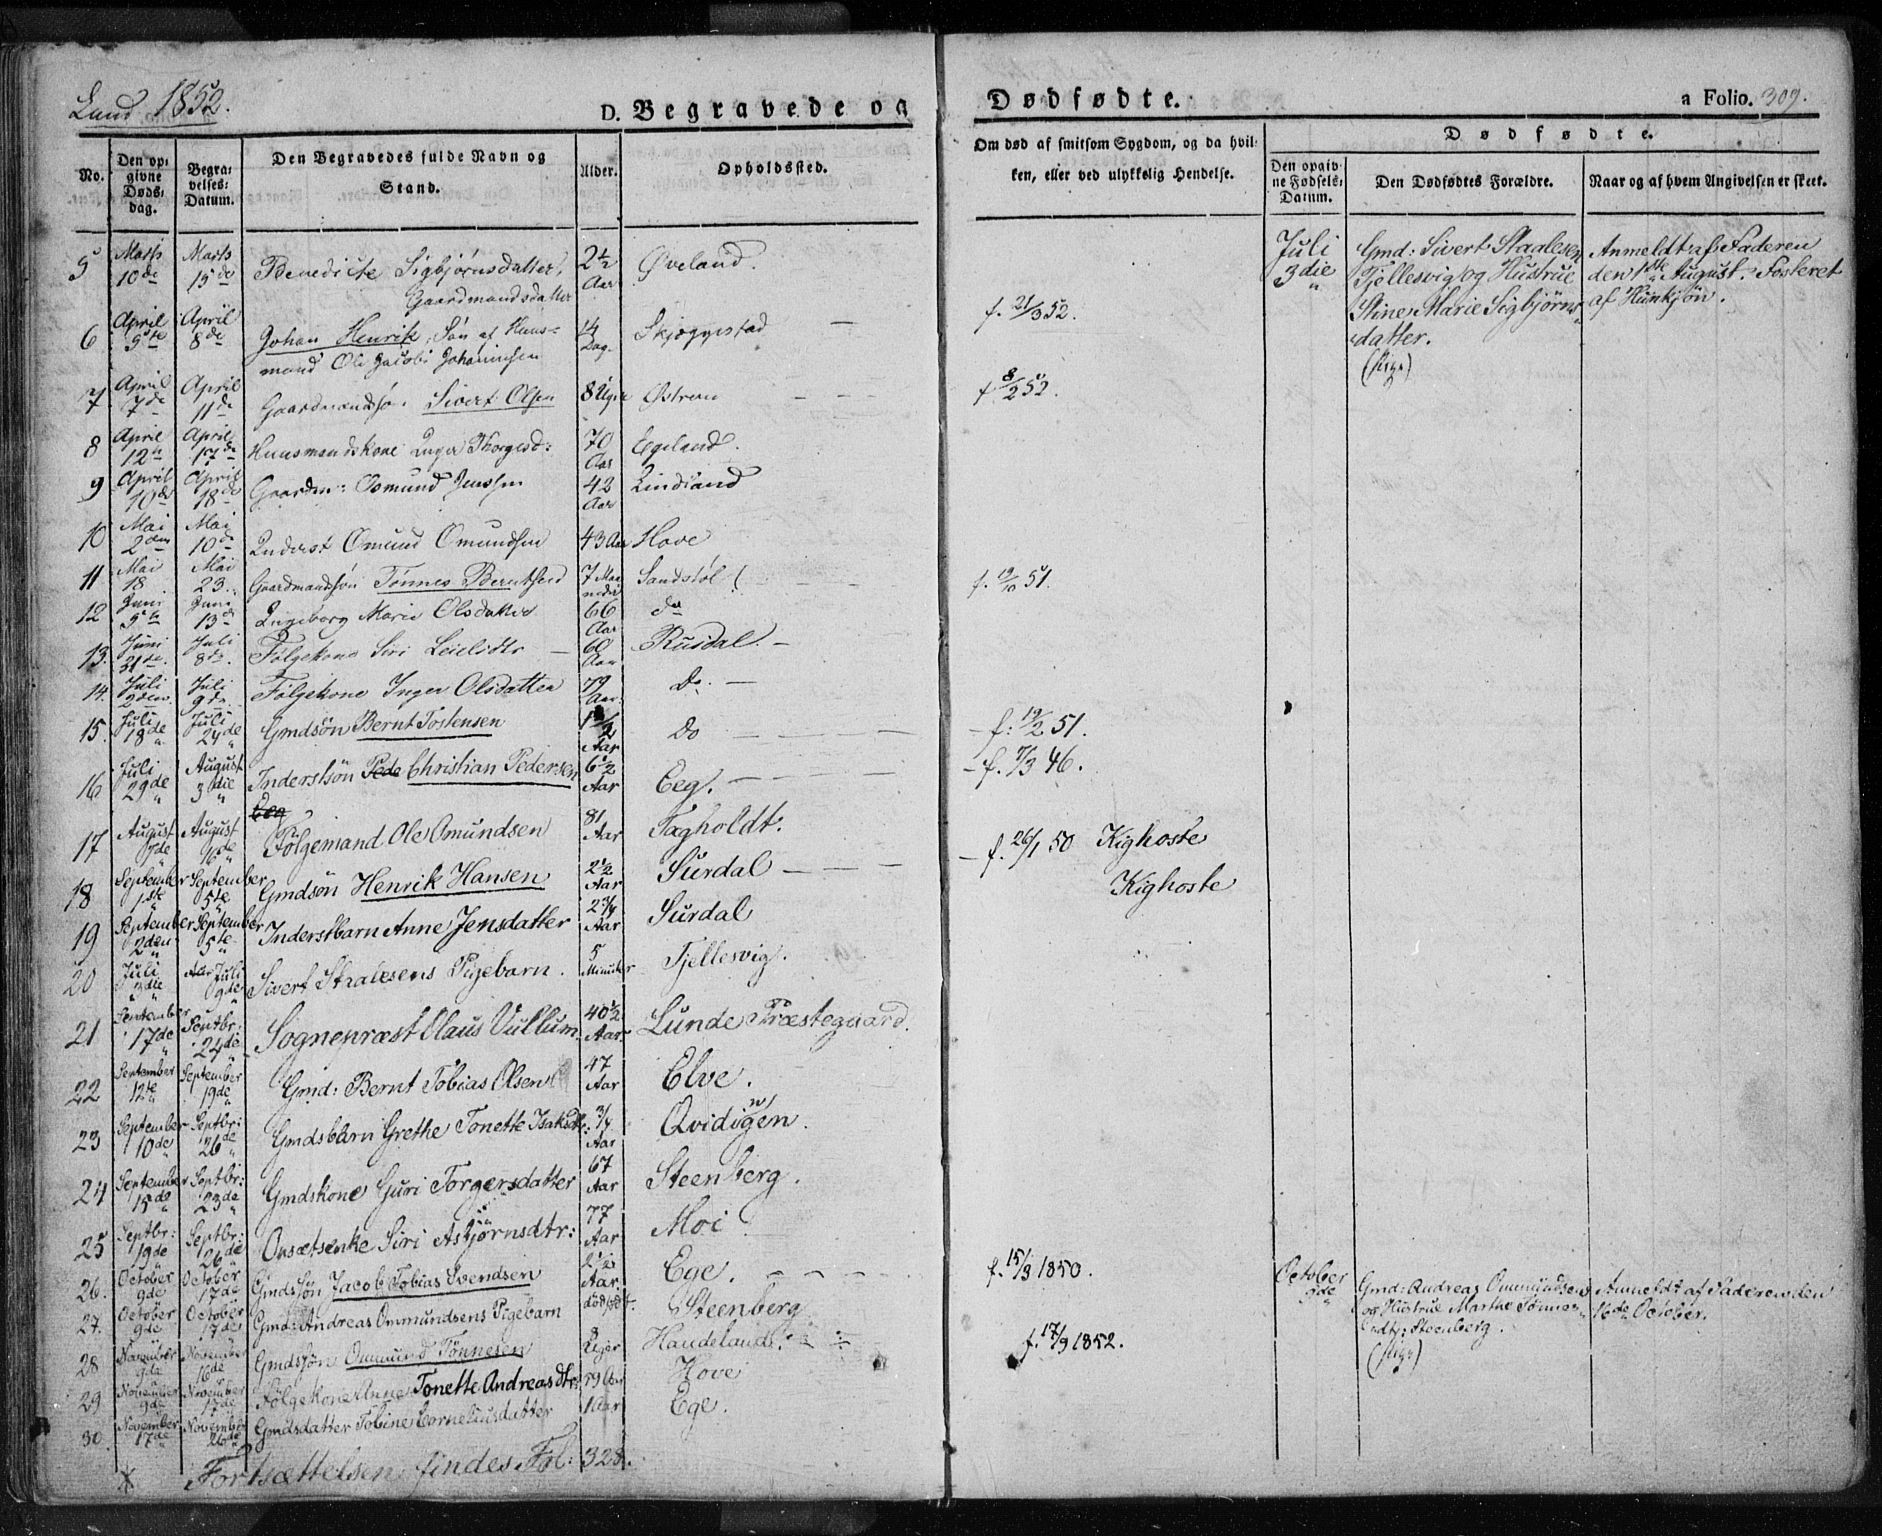 Lund 1852.
D. Begravede og Dødfødte. a Folio. 309.
No.
Den opgivne Dødsdag.
Begravelses-Datum.
Den Begravedes fulde Navn og Stand.
Alder.
Opholdssted.
Om død af smitsom Sygdom, og da hvilken, eller ved ulykkelig Hendelse.
Dødfødte.
Den opgivne Fødsels-Datum.
Den Dødfødtes Forældre.
Naar og af hvem Angivelsen er skeet.
5 Marts 10de Marts 15de Benedicte Sigbjørnsdatter, Gaardmandsdatter 2½ Aar Øveland.
6 April 5te April 8de Johan Henrik, Søn af Huusmand Ole Jacob Johannesen 14 Dag. Skjæggestad f. 21/3 52.
7 April 7de April 11de Gaardmandssøn Sivert Olsen 8 Uger Østrem f. 8/2 52.
8 April 12te April 17de Huusmandskone Inger Thorgersd: 70 Aar Egeland.
9 April 10de April 18de Gaardm: Osmund Jenssen 42 Aar Lindland
10 Mai 2den Mai 10de Inderst Omund Omundsen 43 Aar Hove
11 Mai 18 Mai 23. Gaardmandssøn Tønnes Berntsen 7 Maaneder Sandstøl f. 19/10 51.
12 Juni 5te Juni 13de Ingeborg Marie Olsdatter 66 Aar do
13. Juni 21de Juli 8de. Følgekone Siri Leielidtr 60 Aar Rusdal.
14. Juli 2den Juli 9de. Følgekone Inger Olsdatter 79 Aar. Do.
15. Juli 18de Juli 24de Gmdsøn Bernt Tostensen 1½ Aar Do f. 19/2 51.
16 Juli 29de August 3die Inderstsøn Pede Christian Pedersen 6½ Aar Eeg. f. 7/3 46.
Eeg
17 August 7de August 16de Følgemand Ole Omundsen 81 Aar Fagholdt.
18 September 1ste September 5te Gmdsøn Henrik Hansen 2½ Aar Surdal f. 26/1 50 Kighoste
19 September 2den September 5te Inderstbarn Anne Jensdatter 2¾ Aar Surdal Kighoste
20 Juli 3die Juli 9de Sivert Staalesens Pigebarn. 5 Minuter Fjellesvig.
21 September 17de Septbr: 24de Sognepræst Olaus Vullum 40½ Aar Lunde Præstegaard.
22 September 12te September 19de Gmd: Bernt Tobias Olsen 47 Aar Elve.
23 September 10de Septbr: 26de Gmdsbarn Grethe Tonette Isaksdtr: ¾ Aar Qvidingen.
24 September 15de Septbr: 23de Gmdskone Guri Torgersdatter 67 Aar Steenberg.
25 Septbr: 19de Septbr: 26de Opsætsenke Siri Asbjørnsdtr: 77 Aar Moi
26. October 9de October 17de Gmdssøn Jacob Tobias Svendsen 2½ Aar Ege. f. 15/3 1850.
27. October 9de October 17de Gmd: Andreas Ommundsens Pigebarn dødfødt. Steenberg
28 November 9de November 16de Gmdssøn Ommund Tønnesen 8 Uger Handeland. f. 17/9 1852.
29 November 9de November 17de Følgekone Anne Tonette Andreasdtr: 79 Aar Hove
30. November 17de November 26de Gmdsdatter Tobine Corneliusdatter 1 Aar Ege.
Fortsættelsen findes Fol: 328.
Juli 3die Gmd: Sivert Staalesen Fjellesvig og Hustrue Stine Marie Sigbjørnsdatter. (Pige) Anmeldt af Faderen den 1ste August. Fosteret af Hunkjøn.
October 9de Gmd: Andreas Ommundsen og Hustrue Marthe Tønnesdtr: Steenberg. (Pige) Anmeldt af Faderen den 16de October.